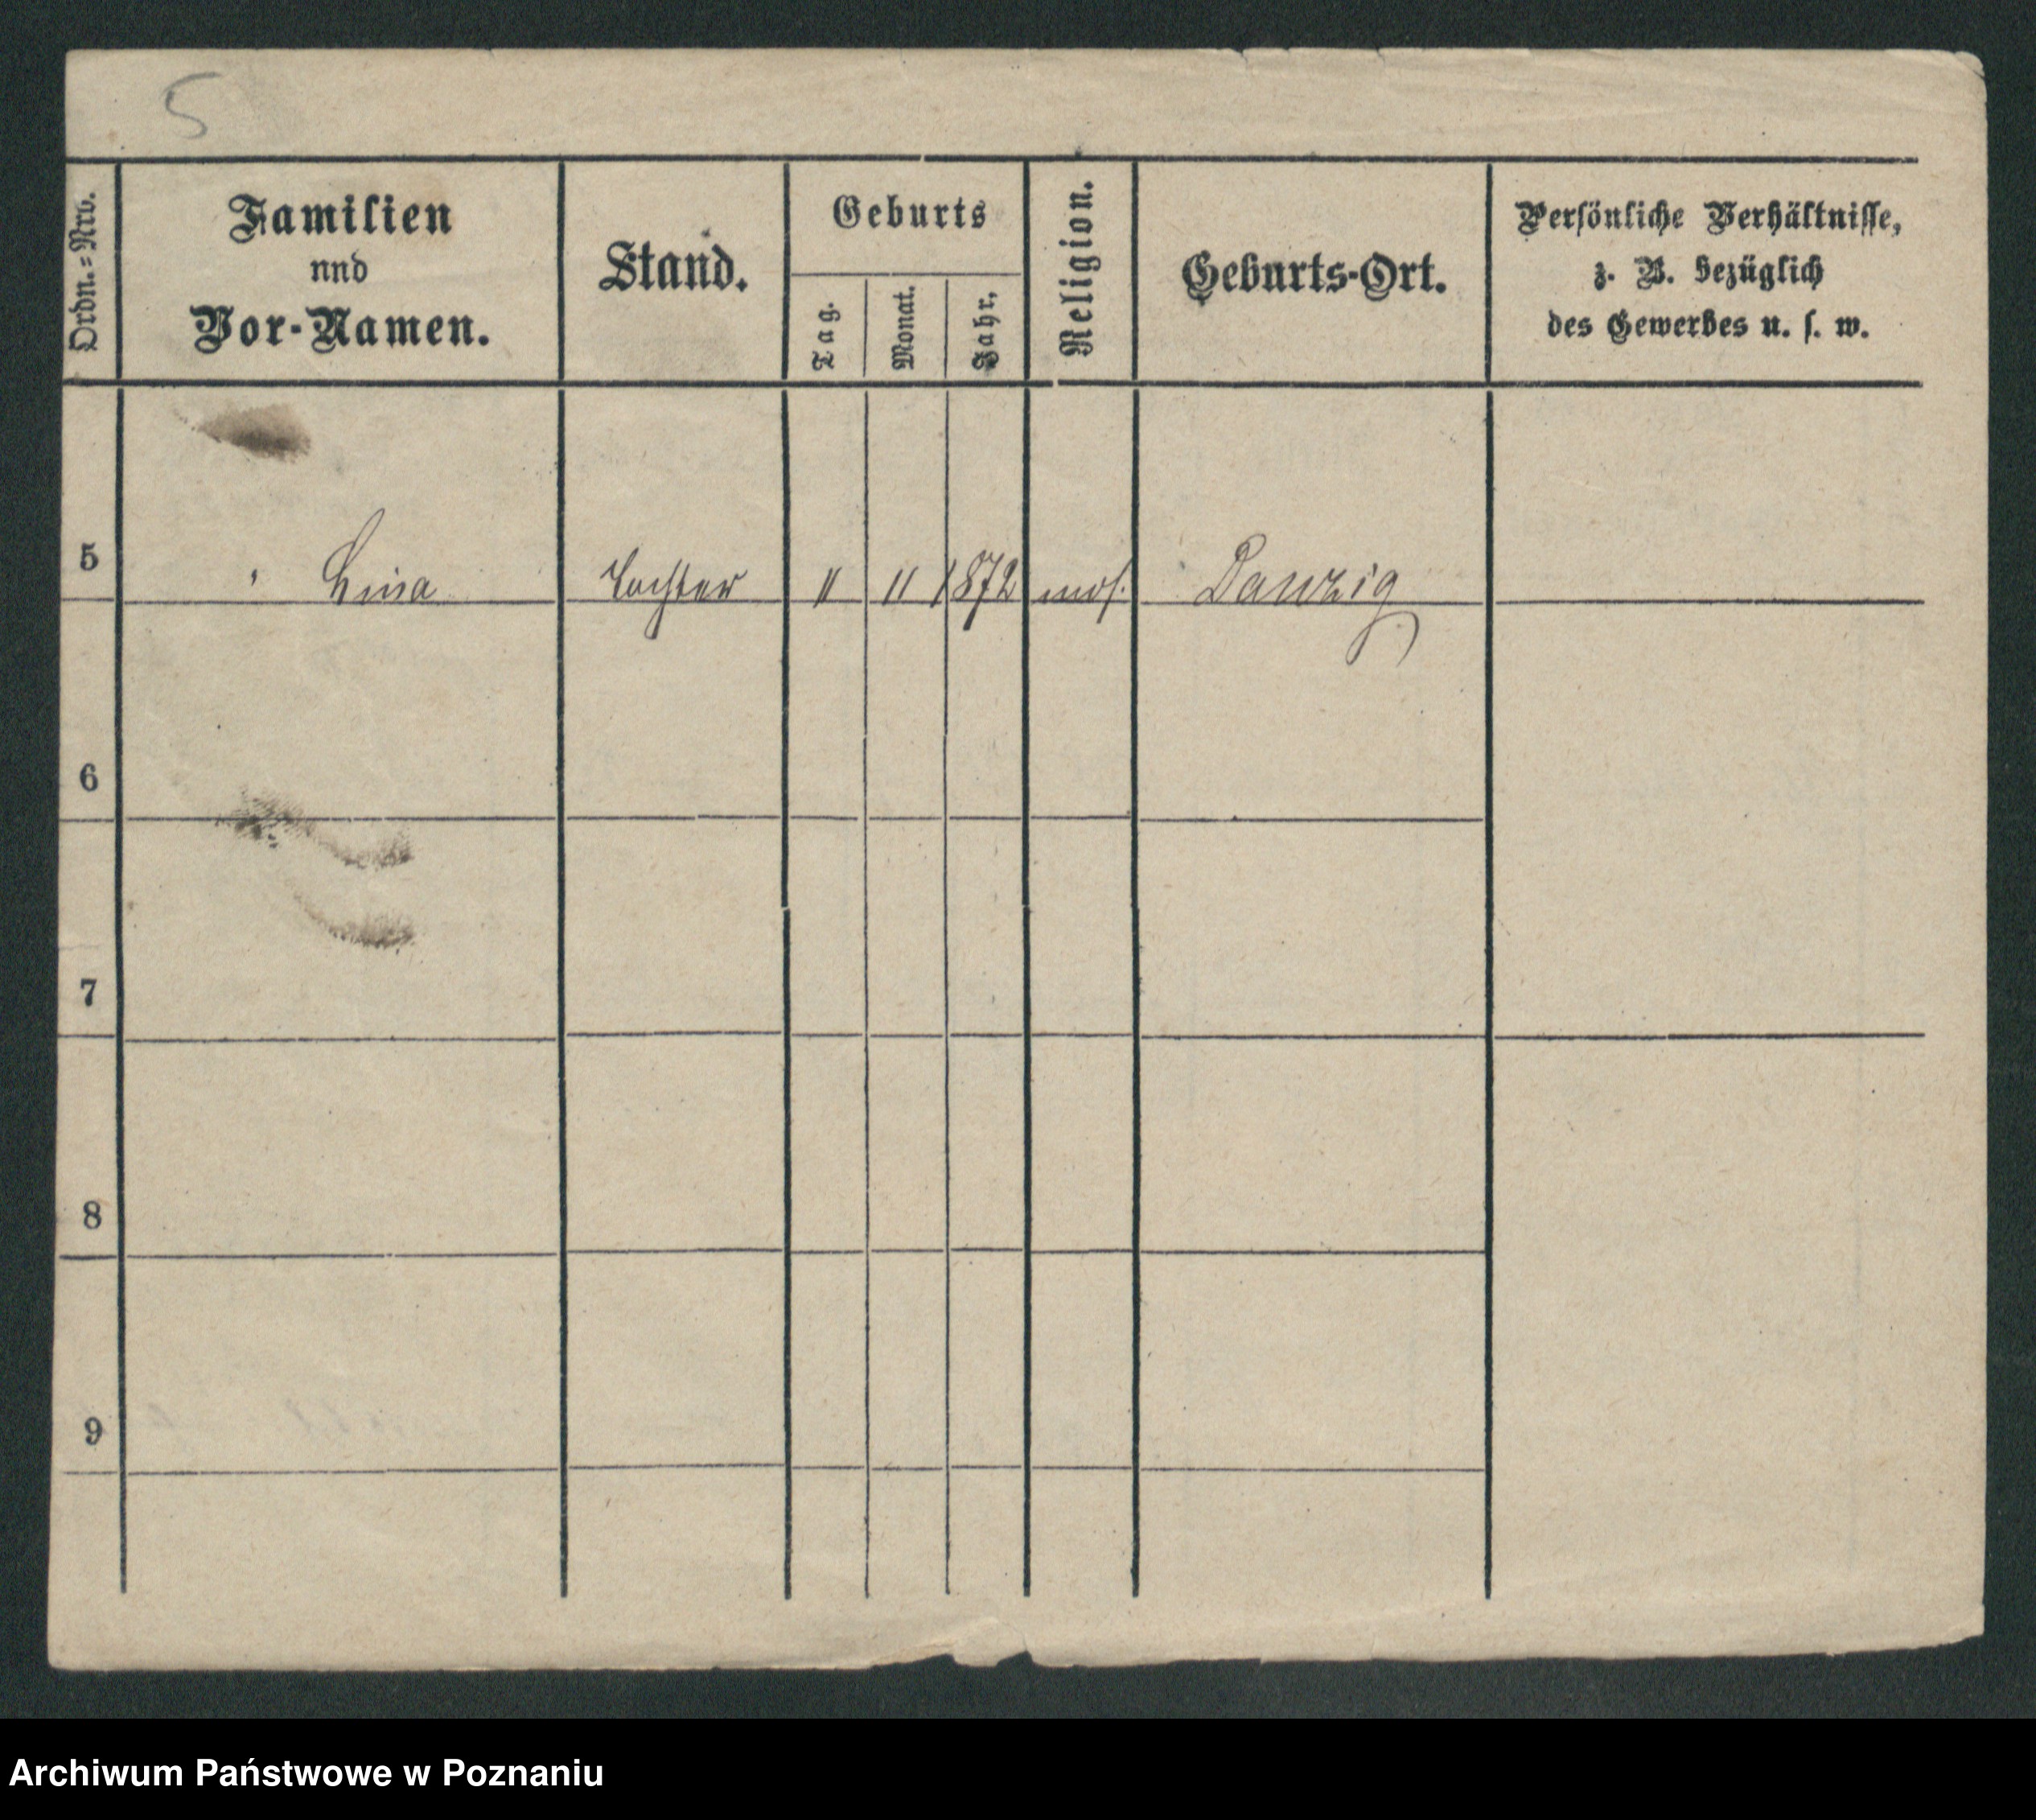 5
Ordn.=Nrb.
Familien
nnd
Vor-Namen.
Stand.
Geburts
Tag.
Monat.
Jahr,
Religion.
Geburts-Ort.
Persönliche Verhältnisse,
z. B. bezüglich
des Gewerbes u. s. w.
5 " Lina Tochter 11 11 1872 mos. Danzig
6
7
8
9
Archiwum Państwowe w Poznaniu